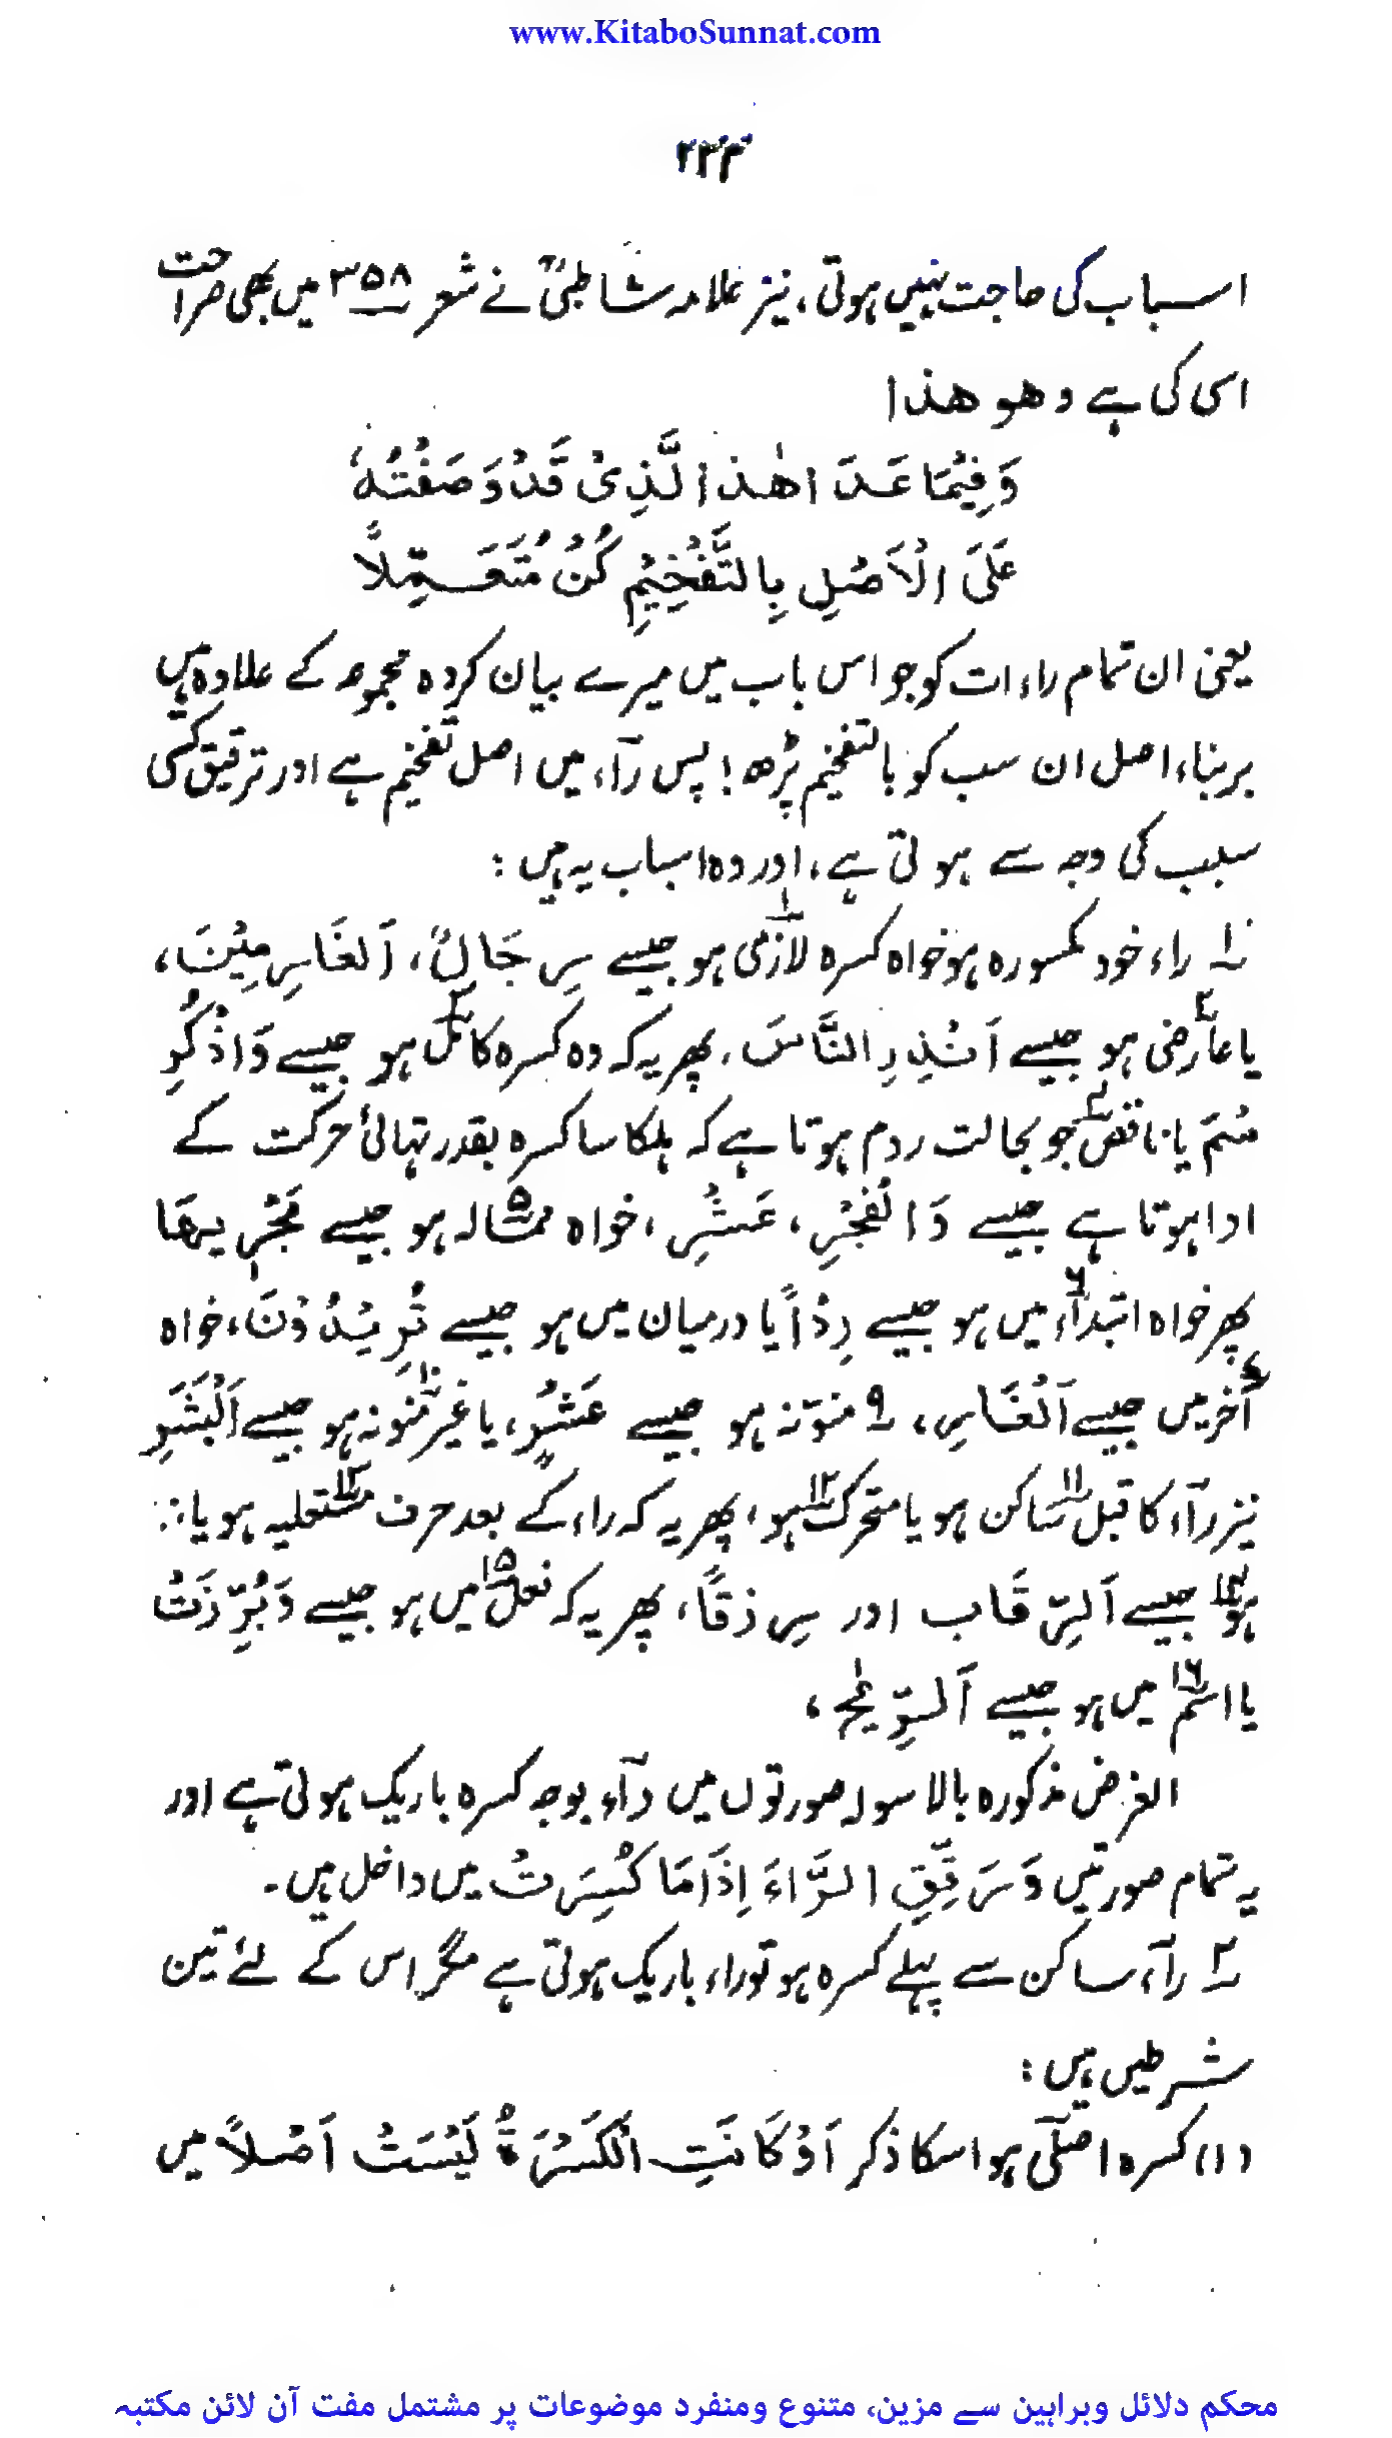 www.KitaboSunnat.com
۲۲۳
اسباب کی حاجت نہیں ہوتی، نیز علامہ شاطبیؒ نے شعر ۳۵۸ میں بھی صراحت
اسی کی ہے وھو ھذا
وَفِیْمَا عَدَا ھٰذَا الَّذِیْ قَدْ وَصَفْتُہٗ
عَلَی الْاَصْلِ بِالتَّفْخِیْمِ کُنْ مُتَعَمِّلًا
یعنی ان تمام راءات کو جو اس باب میں میرے بیان کردہ مجموعہ کے علاوہ ہیں
بربناء اصل ان سب کو بالتفخیم پڑھ! پس رآء میں اصل تفخیم ہے اور ترقیق کسی
سبب کی وجہ سے ہوتی ہے، اور وہ اسباب یہ ہیں:
۱ راء خود مکسورہ ہو خواہ کسرہ لازمی۱ ہو جیسے رِجَالٌ، اَلْغَارِمِیْنَ،
یا عارضی۲ ہو جیسے اَنْذِرِ النَّاسَ، پھر یہ کہ وہ کسرہ کامل۳ ہو جیسے وَاذْکُرِ
سْمَ یا ناقص۴ جو بحالت روم ہوتا ہے کہ ہلکا سا کسرہ بقدر تہائی حرکت کے
ادا ہوتا ہے جیسے وَالْفَجْرِ، عَشْرٍ، خواہ ممالہ۵ ہو جیسے مَجْرٖىھَا
پھر خواہ ابتداء۶ میں ہو جیسے رِدْاً یا درمیان میں ہو جیسے تُرِیْدُوْنَ، خواہ
آخر۸ میں جیسے اَلْغَارِ، ۹ منوّنہ ہو جیسے عَشْرٍ، یا غیر منونہ۱۰ ہو جیسے اَلْبَشَرِ
نیز رآء کا قبل ساکن۱۱ ہو یا متحرک۱۲ ہو، پھر یہ کہ راء کے بعد حرف مستعلیہ۱۳ ہو یا نہ
ہو۱۴ جیسے اَلرِّقَاب اور رِزْقًا، پھر یہ کہ فعل۱۵ میں ہو جیسے وَبُرِّزَتْ
یا اسم۱۶ میں ہو جیسے اَلرِّیٰح،
الغرض مذکورہ بالا سولہ صورتوں میں رآء بوجہ کسرہ باریک ہوتی ہے اور
یہ تمام صورتیں وَرَقِّقِ الرَّاءَ اِذَا مَا کُسِرَتْ میں داخل ہیں۔
۲ راء ساکن سے پہلے کسرہ ہو تو راء باریک ہوتی ہے مگر اس کے لئے تین
شرطیں ہیں:
(۱) کسرہ اصلی ہو اسکا ذکر اَوْ کَانَتِ الْکَسْرَۃُ لَیْسَتْ اَصْلاً میں
محکم دلائل وبراہین سے مزین، متنوع ومنفرد موضوعات پر مشتمل مفت آن لائن مکتبہ